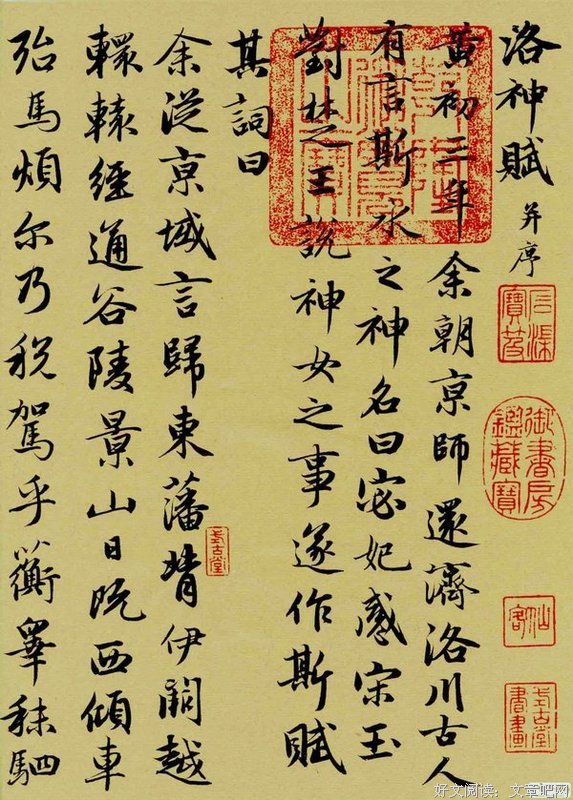 洛神賦 并序
黃初三年余朝京師還濟洛川古人
有言斯水之神名曰宓妃感宋玉
對楚王說神女之事遂作斯賦
其詞曰
余從京域言歸東藩背伊闕越
轘轅經通谷陵景山日既西傾車
殆馬煩尔乃税駕乎蘅皋秣駟
御書房鑑藏寶
仙客
好文阅读:文章吧网